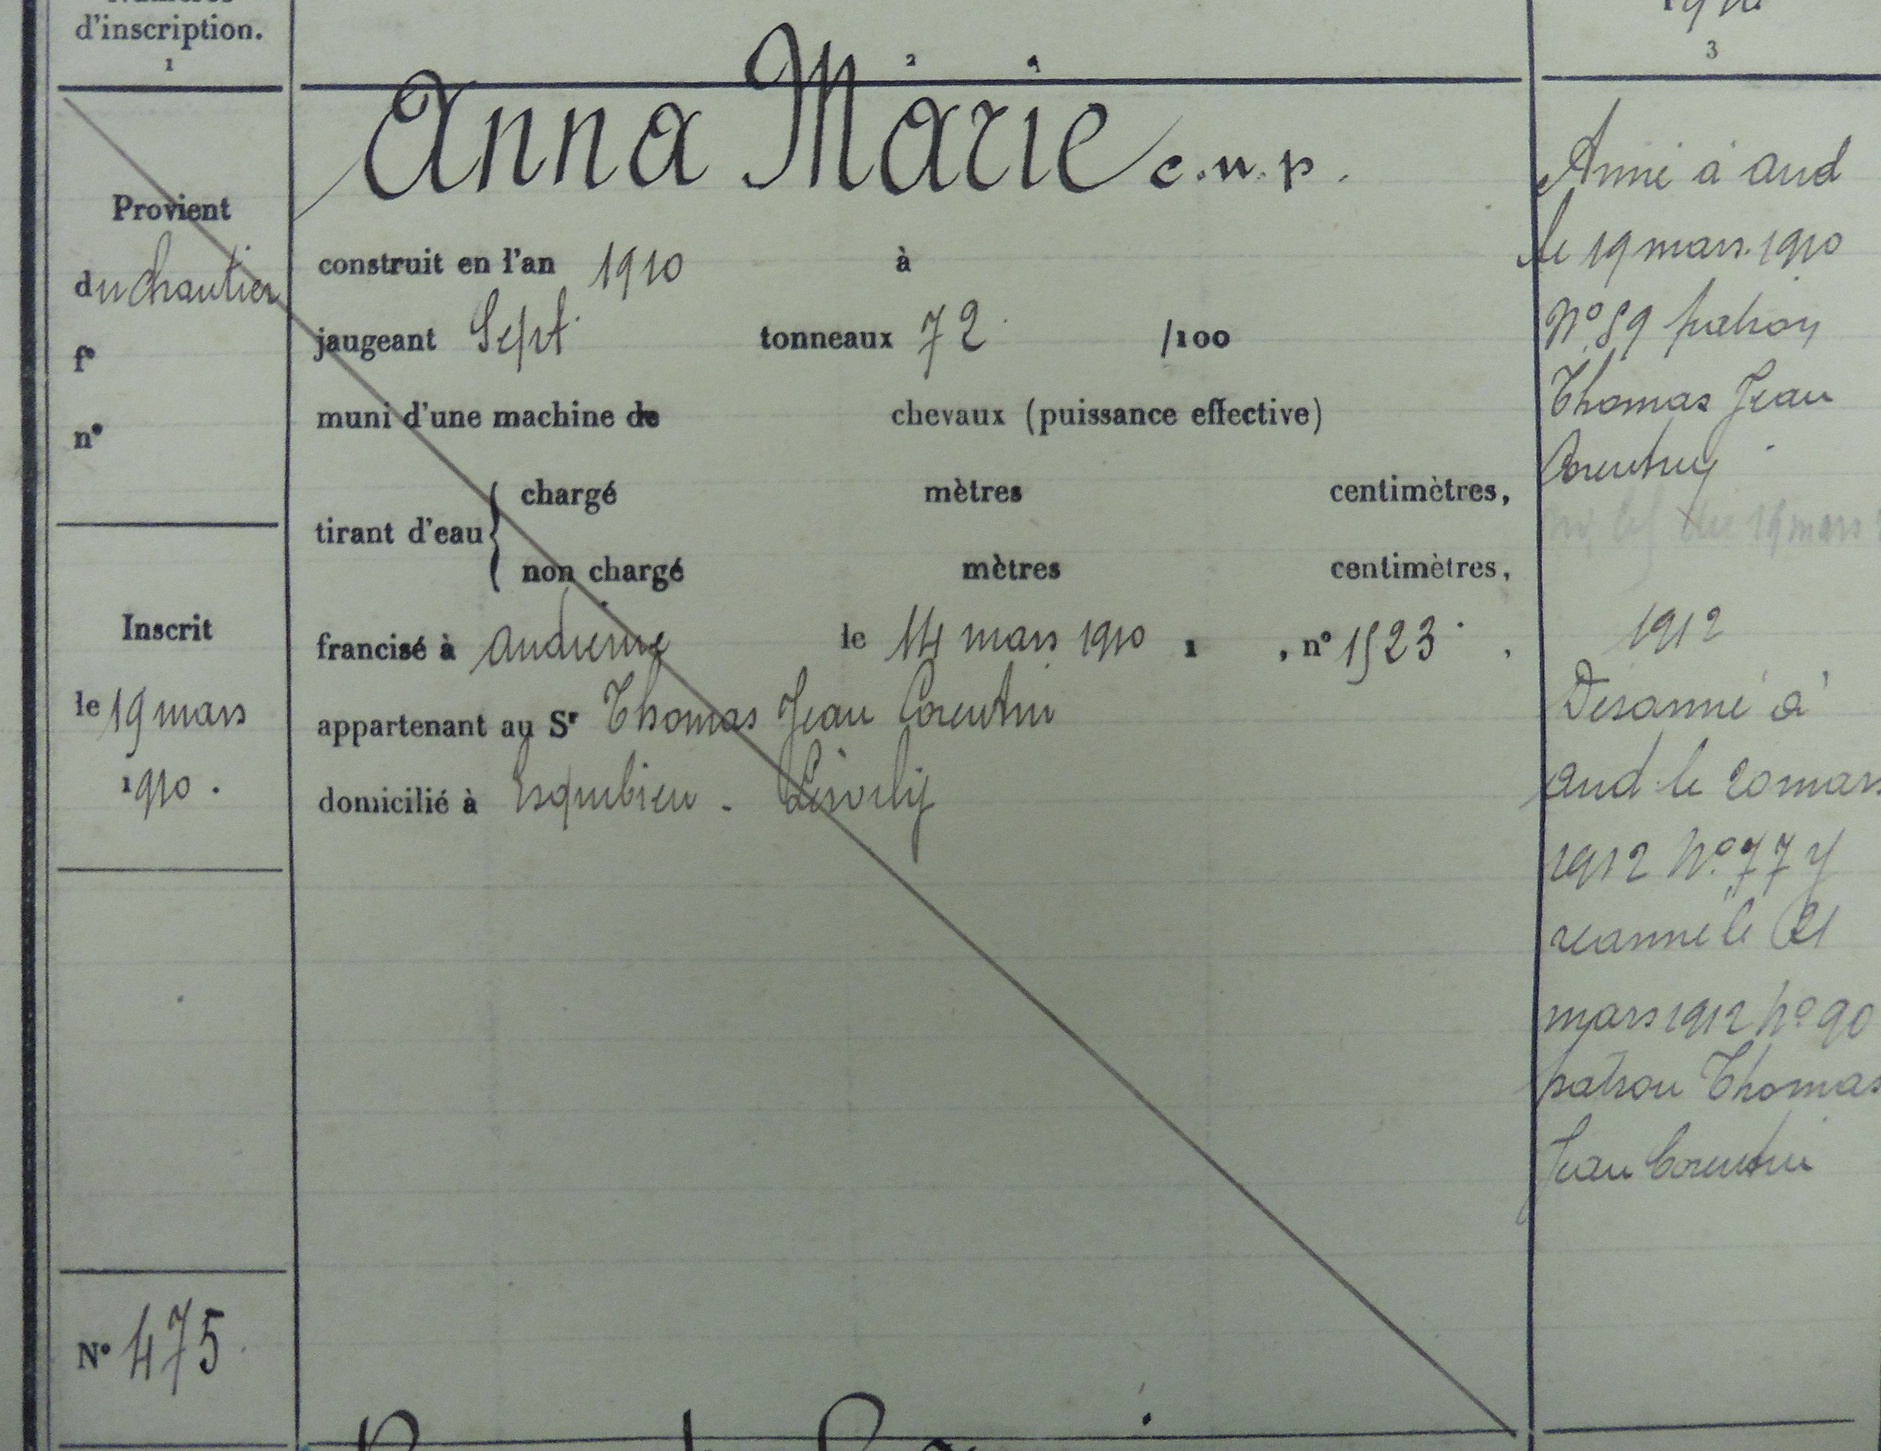 d'inscription.
1
2
3
Anna Marie c.n.p.
Provient
du chantier
f°
n°
construit en l'an 1910 à
jaugeant Sept tonneaux 72 /100
muni d'une machine de chevaux (puissance effective)
tirant d'eau { chargé mètres centimètres,
non chargé mètres centimètres,
francisé à audierne le 14 mars 1910 1 , n° 1523 ,
appartenant au Sr Thomas Jean Corentin
domicilié à Esquibien - Lervily
Inscrit
le 19 mars
1910.
N° 475
Armé à aud
le 19 mars 1910
N° 89 patron
Thomas Jean
Corentin
du 19 mars
1912
Désarmé à
aud le 20 mars
1912 N° 77 y
réarmé le 21
mars 1912 N° 90
patron Thomas
Jean Corentin